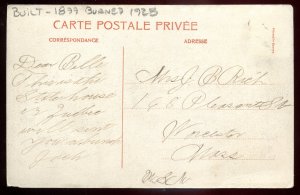 BUILT - 1877 BURNED 1925
CARTE POSTALE PRIVÉE
CORRESPONDANCE
ADRESSE
Dear Bell
This is the
State house
Quebec
will send
you a bunch
Mrs J. B. Rich
166 Pleasant St
Worcester
Mass